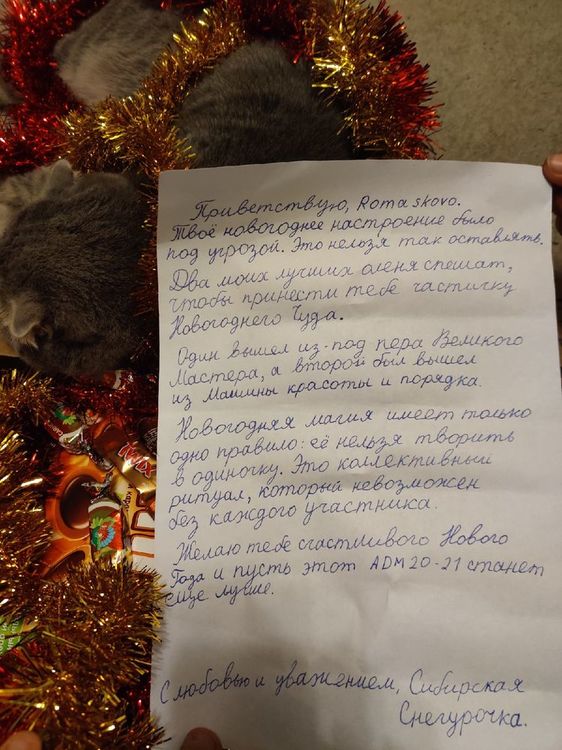 Приветствую, Romaskovo.
Твоё новогоднее настроение было
под угрозой. Это нельзя так оставлять.
Два моих лучших оленя спешат,
чтобы принести тебе частичку
Новогоднего Чуда.
Один вышел из-под пера Великого
Мастера, а второй был вышел
из Машины красоты и порядка.
Новогодняя магия имеет только
одно правило: её нельзя творить
в одиночку. Это коллективный
ритуал, который невозможен
без каждого участника.
Желаю тебе счастливого Нового
Года и пусть этот ADM 20-21 станет
ещё лучше.
С любовью и уважением, Сибирская
Снегурочка.